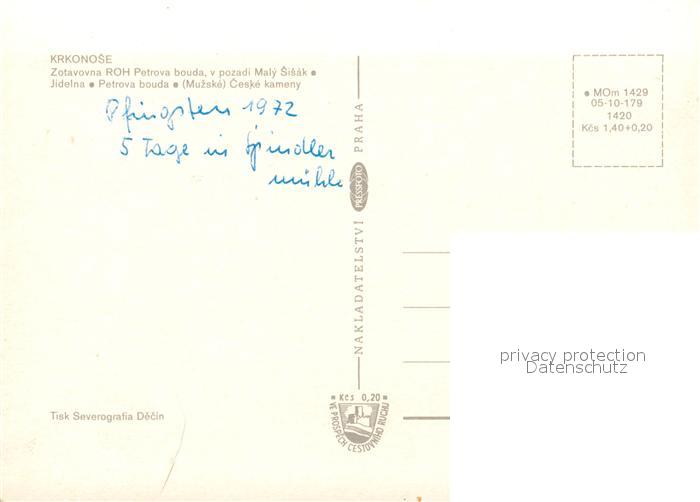 KRKONOŠE
Zotavovna ROH Petrova bouda, v pozadí Malý Šišák ●
Jídelna ● Petrova bouda ● (Mužské) České kameny
Pfingsten 1972
5 Tage in Spindler
mühle
NAKLADATELSTVÍ PRESSFOTO PRAHA
● MOm 1429
05-10-179
1420
Kčs 1,40+0,20
privacy protection
Datenschutz
Kčs 0,20
VE PROSPĚCH CESTOVNÍHO RUCHU
Tisk Severografia Děčín